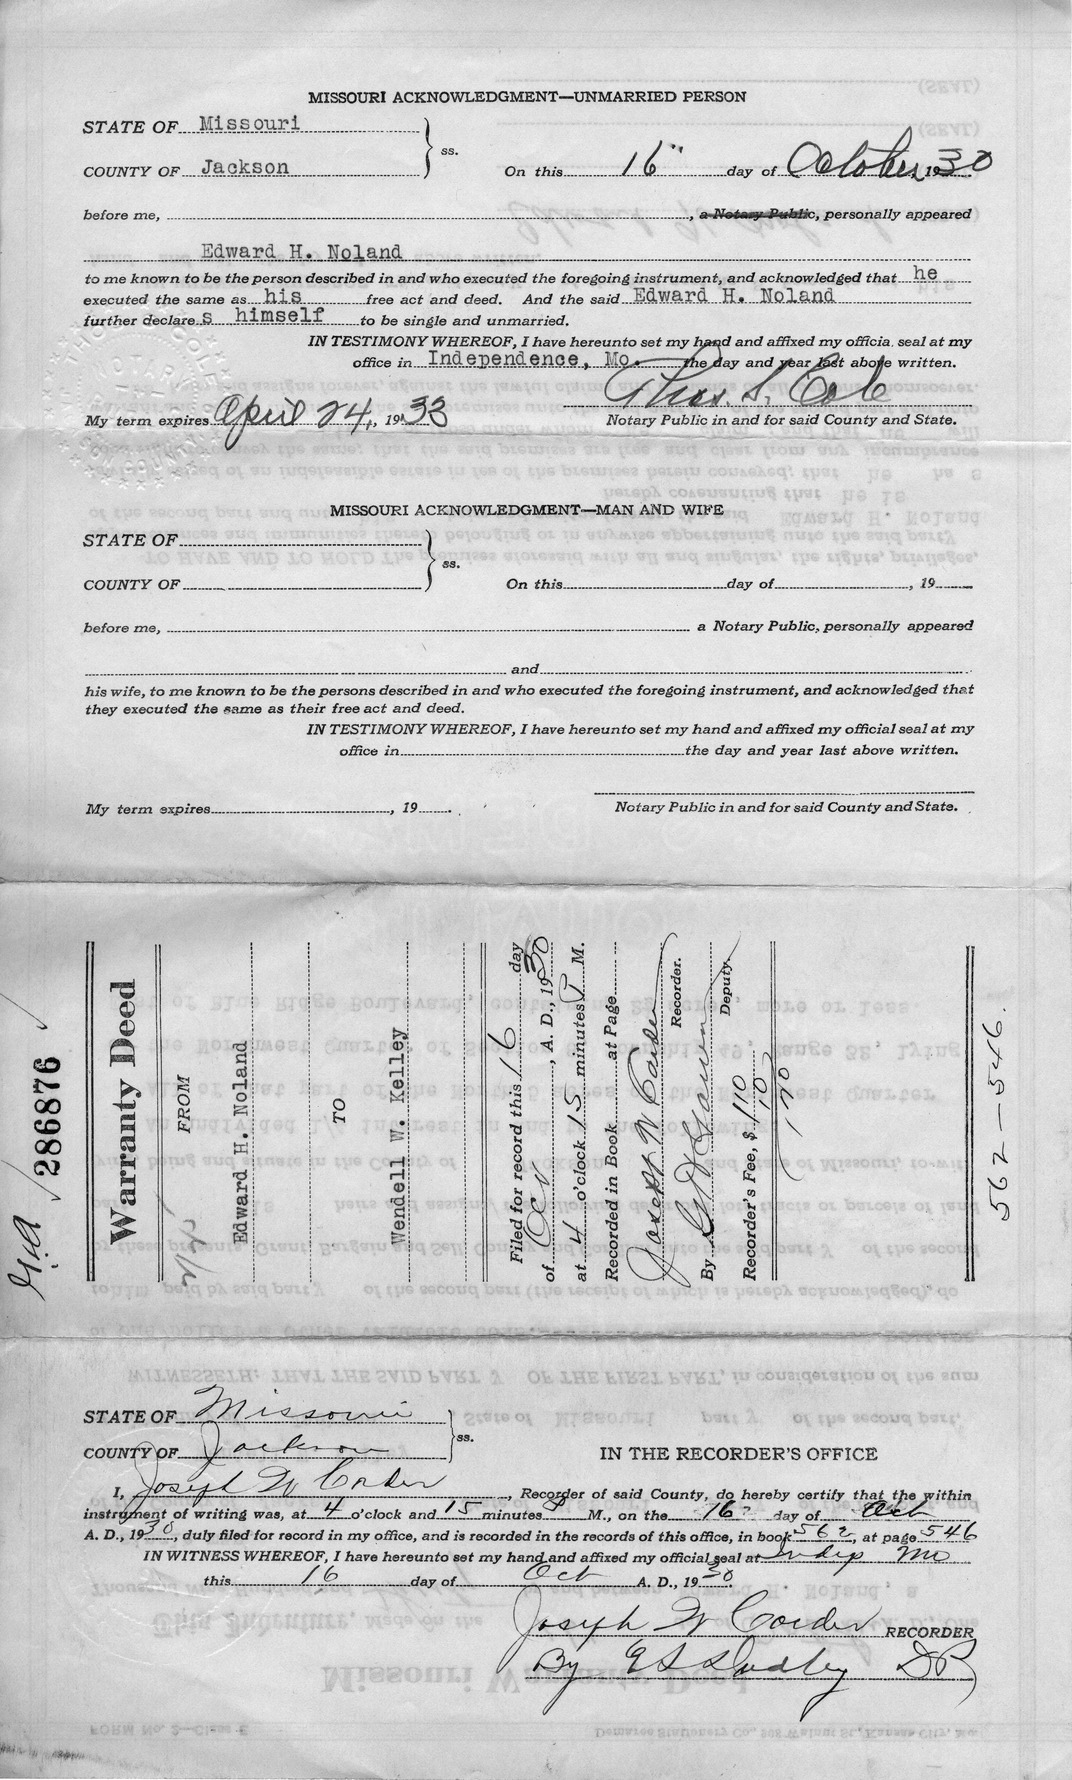 MISSOURI ACKNOWLEDGMENT—UNMARRIED PERSON
STATE OF Missouri
COUNTY OF Jackson ss. On this 16" day of October, 1930
before me, , a Notary Public, personally appeared
Edward H. Noland
to me known to be the person described in and who executed the foregoing instrument, and acknowledged that he
executed the same as his free act and deed. And the said Edward H. Noland
further declare s himself to be single and unmarried.
IN TESTIMONY WHEREOF, I have hereunto set my hand and affixed my official seal at my
office in Independence, Mo. the day and year last above written.
Thos. S. Cole
My term expires April 24, 1933 Notary Public in and for said County and State.
MISSOURI ACKNOWLEDGMENT—MAN AND WIFE
STATE OF
COUNTY OF ss. On this day of , 19
before me, a Notary Public, personally appeared
and
his wife, to me known to be the persons described in and who executed the foregoing instrument, and acknowledged that
they executed the same as their free act and deed.
IN TESTIMONY WHEREOF, I have hereunto set my hand and affixed my official seal at my
office in the day and year last above written.
My term expires , 19 . Notary Public in and for said County and State.
286876
Warranty Deed
FROM
Edward H. Noland
TO
Wendell W. Kelley
Filed for record this 16 day
of Oct , A. D., 1930
at 4 o'clock 15 minutes P M.
Recorded in Book at Page
Joseph W Corder
Recorder.
By
Deputy.
Recorder's Fee, $ 1 10
10
1 20
562-546.
STATE OF Missouri
COUNTY OF Jackson ss.
IN THE RECORDER'S OFFICE
I, Joseph W Corder , Recorder of said County, do hereby certify that the within
instrument of writing was, at 4 o'clock and 15 minutes P M., on the 16 day of Oct
A. D., 1930, duly filed for record in my office, and is recorded in the records of this office, in book 562, at page 546
IN WITNESS WHEREOF, I have hereunto set my hand and affixed my official seal at Indep Mo
this 16 day of Oct A. D., 1930.
Joseph W Corder RECORDER
By E S Dudley DP